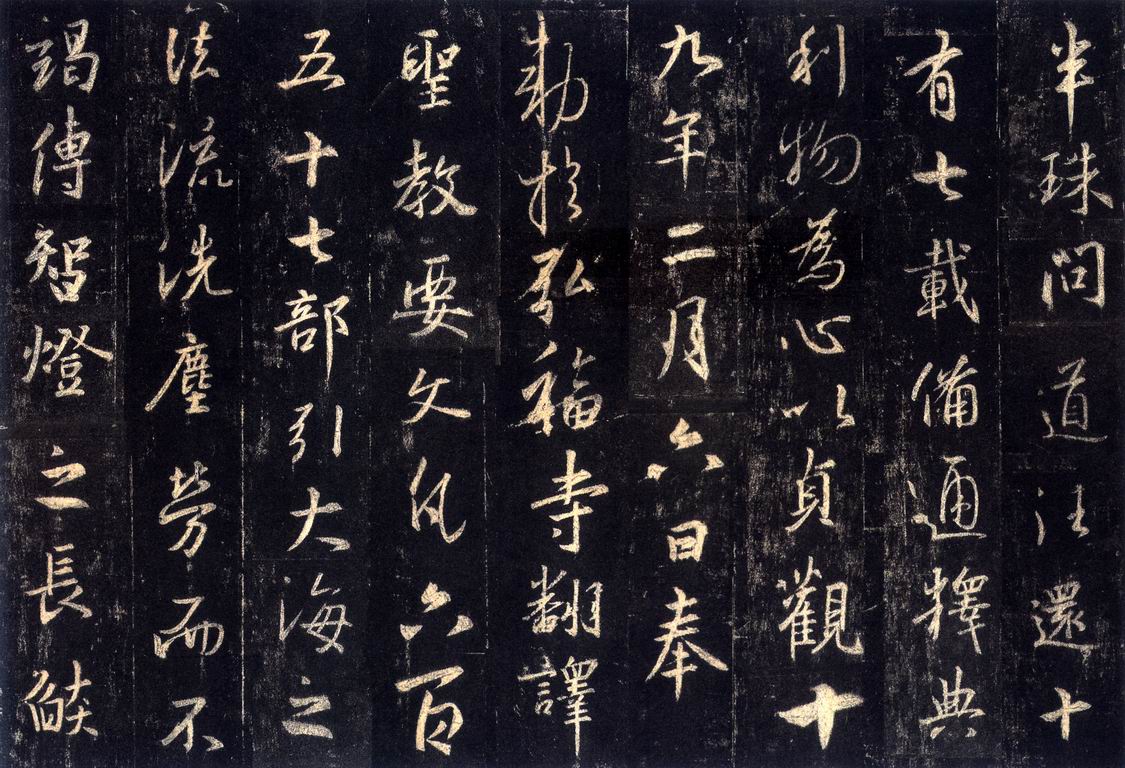 半珠問道往還十
有七載備通釋典
利物爲心以貞觀十
九年二月六日奉
勅於弘福寺翻譯
聖教要文凡六百
五十七部引大海之
法流洗塵勞而不
竭傳智燈之長燄